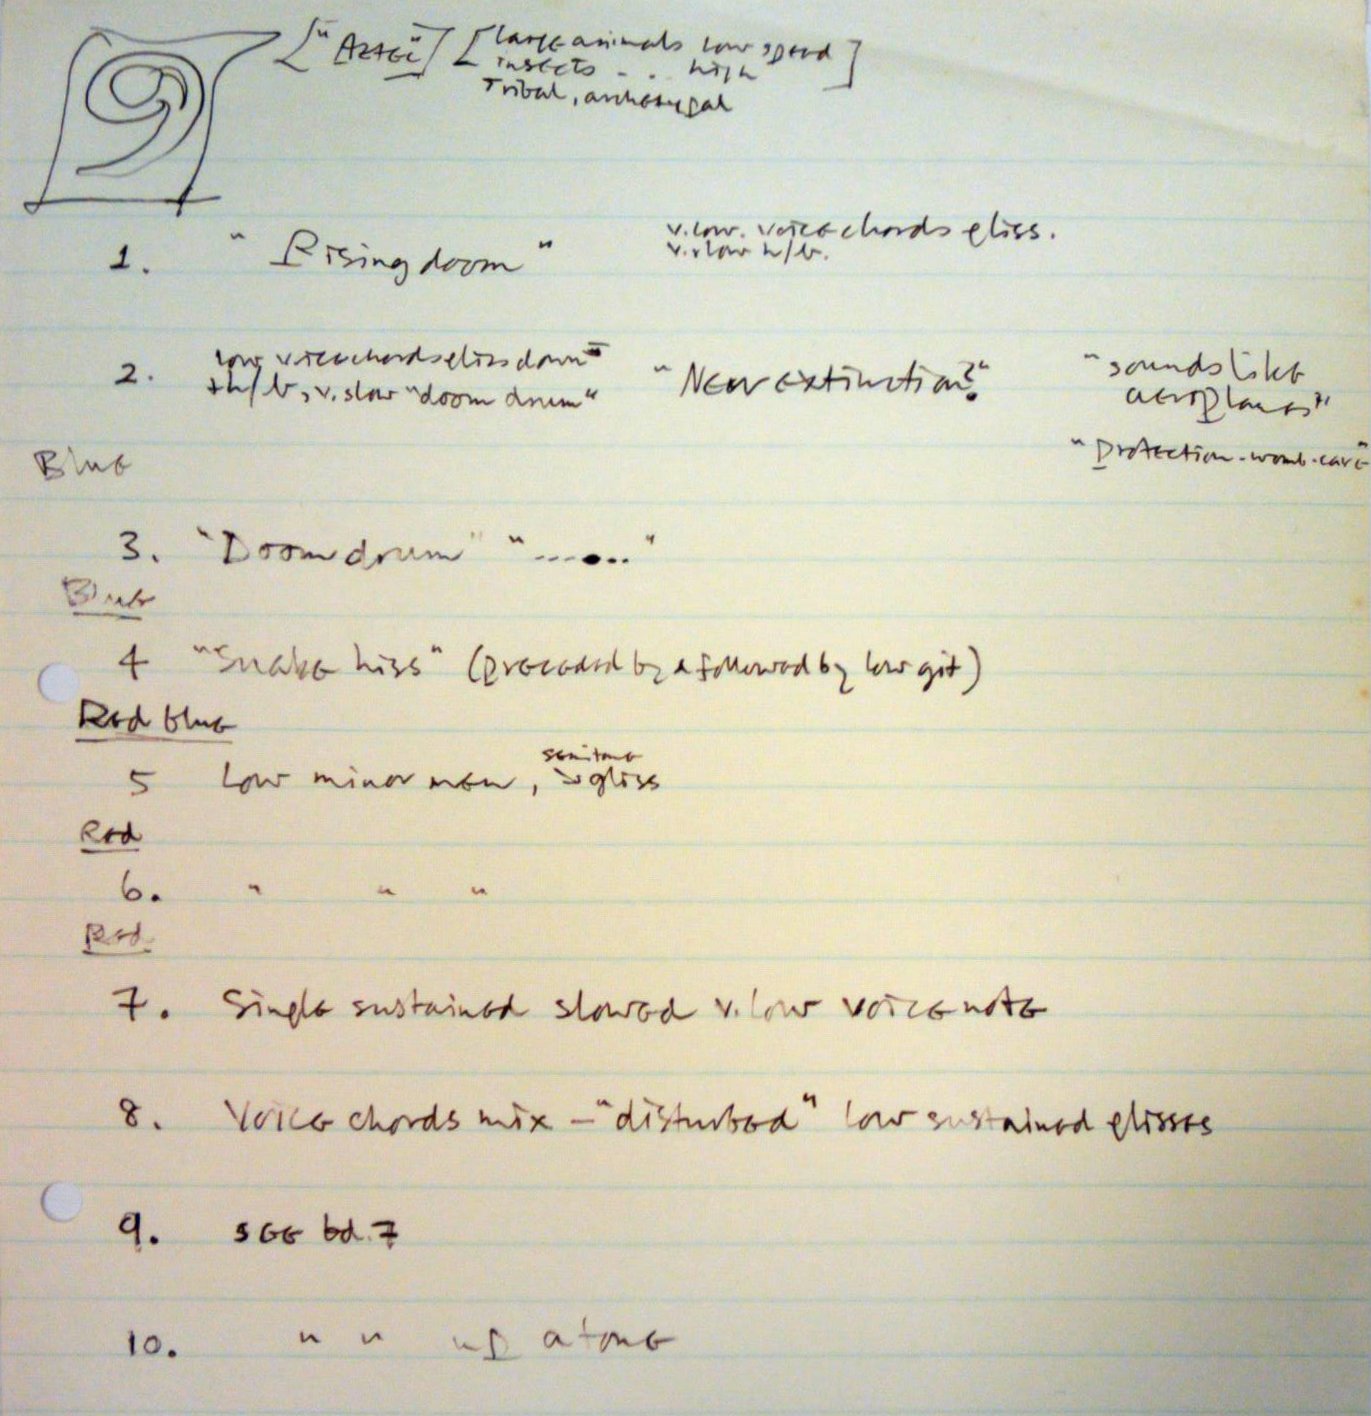 ["Aztec"] [large animals low speed
insects - . . high
Tribal, archetypal]
1. "Rising doom" v.low. voice chords gliss.
v.slow h/b.
2. low voice chords gliss down
+ h/b, v.slow "doom drum" "New extinction?" "sounds like
aeroplanes"
"Protection-womb-cave"
Blue
3. "Doom drum" "......"
Blue
4 "Snake hiss" (preceded by & followed by low git)
Red blue
5 Low minor men, semitone
↘ gliss
Red
6. " " "
Red
7. Single sustained slowed v.low voice note
8. Voice chords mix - "disturbed" low sustained glisses
9. see bd.7
10. " " up a tone